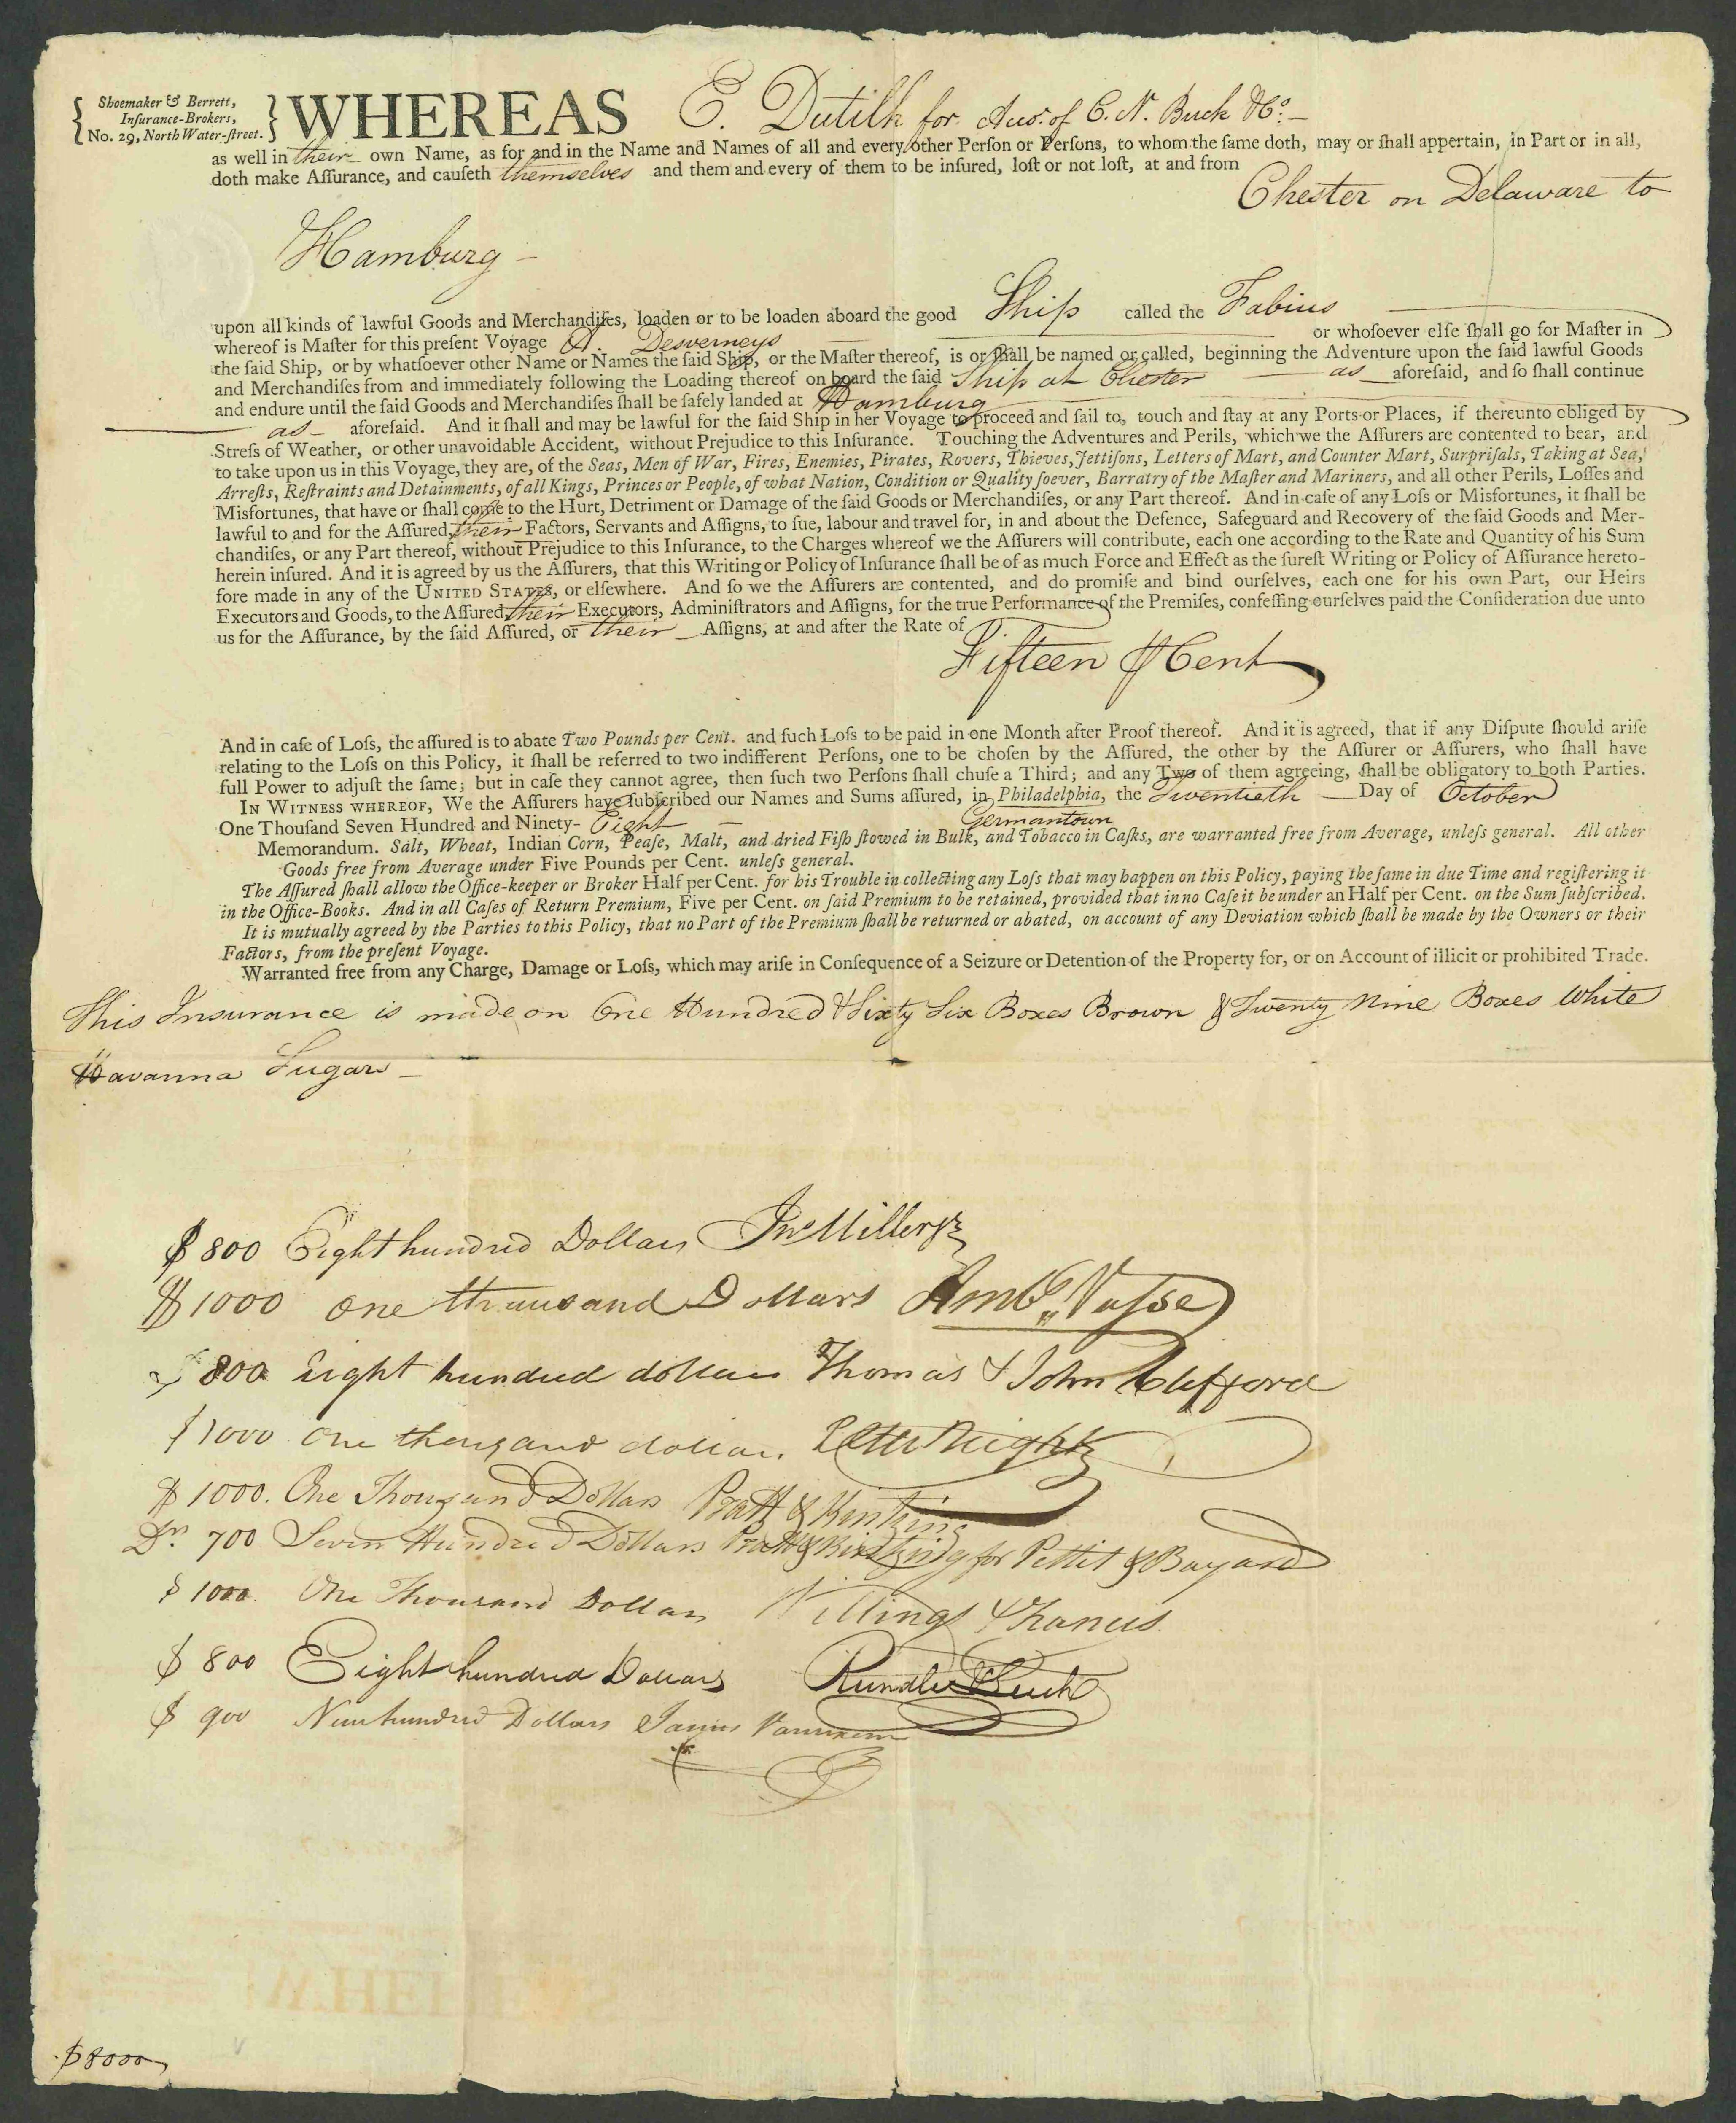 Shoemaker & Berrett,
Inſurance-Brokers,
No. 29, North Water-ſtreet.
WHEREAS E. Dutilh for Acco.t of C. N. Buck & Co. —
as well in their own Name, as for and in the Name and Names of all and every other Perſon or Perſons, to whom the ſame doth, may or ſhall appertain, in Part or in all,
doth make Aſſurance, and cauſeth themselves and them and every of them to be inſured, loſt or not loſt, at and from
Chester on Delaware to
Hamburg —
upon all kinds of lawful Goods and Merchandiſes, loaden or to be loaden aboard the good Ship called the Fabius
whereof is Maſter for this preſent Voyage A. Desverneys or whoſoever elſe ſhall go for Maſter in
the ſaid Ship, or by whatſoever other Name or Names the ſaid Ship, or the Maſter thereof, is or ſhall be named or called, beginning the Adventure upon the ſaid lawful Goods
and Merchandiſes from and immediately following the Loading thereof on board the ſaid Ship at Chester — as — aforeſaid, and ſo ſhall continue
and endure until the ſaid Goods and Merchandiſes ſhall be ſafely landed at Hamburg
— as — aforeſaid. And it ſhall and may be lawful for the ſaid Ship in her Voyage to proceed and ſail to, touch and ſtay at any Ports or Places, if thereunto obliged by
Streſs of Weather, or other unavoidable Accident, without Prejudice to this Inſurance. Touching the Adventures and Perils, which we the Aſſurers are contented to bear, and
to take upon us in this Voyage, they are, of the Seas, Men of War, Fires, Enemies, Pirates, Rovers, Thieves, Jettiſons, Letters of Mart, and Counter Mart, Surpriſals, Taking at Sea,
Arreſts, Reſtraints and Detainments, of all Kings, Princes or People, of what Nation, Condition or Quality ſoever, Barratry of the Maſter and Mariners, and all other Perils, Loſſes and
Misfortunes, that have or ſhall come to the Hurt, Detriment or Damage of the ſaid Goods or Merchandiſes, or any Part thereof. And in caſe of any Loſs or Misfortunes, it ſhall be
lawful to and for the Aſſured, their Factors, Servants and Aſſigns, to ſue, labour and travel for, in and about the Defence, Safeguard and Recovery of the ſaid Goods and Mer-
chandiſes, or any Part thereof, without Prejudice to this Inſurance, to the Charges whereof we the Aſſurers will contribute, each one according to the Rate and Quantity of his Sum
herein inſured. And it is agreed by us the Aſſurers, that this Writing or Policy of Inſurance ſhall be of as much Force and Effect as the ſureſt Writing or Policy of Aſſurance hereto-
fore made in any of the UNITED STATES, or elſewhere. And ſo we the Aſſurers are contented, and do promiſe and bind ourſelves, each one for his own Part, our Heirs
Executors and Goods, to the Aſſured, their Executors, Adminiſtrators and Aſſigns, for the true Performance of the Premiſes, confeſſing ourſelves paid the Conſideration due unto
us for the Aſſurance, by the ſaid Aſſured, or their Aſſigns, at and after the Rate of
Fifteen ⅌ Cent
And in caſe of Loſs, the aſſured is to abate Two Pounds per Cent. and ſuch Loſs to be paid in one Month after Proof thereof. And it is agreed, that if any Diſpute ſhould ariſe
relating to the Loſs on this Policy, it ſhall be referred to two indifferent Perſons, one to be choſen by the Aſſured, the other by the Aſſurer or Aſſurers, who ſhall have
full Power to adjuſt the ſame; but in caſe they cannot agree, then ſuch two Perſons ſhall chuſe a Third; and any Two of them agreeing, ſhall be obligatory to both Parties.
IN WITNESS WHEREOF, We the Aſſurers have ſubſcribed our Names and Sums aſſured, in Philadelphia, the Twentieth — Day of October
Germantown
One Thouſand Seven Hundred and Ninety- Eight —
Memorandum. Salt, Wheat, Indian Corn, Peaſe, Malt, and dried Fiſh ſtowed in Bulk, and Tobacco in Caſks, are warranted free from Average, unleſs general. All other
Goods free from Average under Five Pounds per Cent. unleſs general.
The Aſſured ſhall allow the Office-keeper or Broker Half per Cent. for his Trouble in collecting any Loſs that may happen on this Policy, paying the ſame in due Time and regiſtering it
in the Office-Books. And in all Caſes of Return Premium, Five per Cent. on ſaid Premium to be retained, provided that in no Caſe it be under an Half per Cent. on the Sum ſubſcribed.
It is mutually agreed by the Parties to this Policy, that no Part of the Premium ſhall be returned or abated, on account of any Deviation which ſhall be made by the Owners or their
Factors, from the preſent Voyage.
Warranted free from any Charge, Damage or Loſs, which may ariſe in Conſequence of a Seizure or Detention of the Property for, or on Account of illicit or prohibited Trade.
This Insurance is made on One Hundred & Sixty Six Boxes Brown & Twenty Nine Boxes White
Havanna Sugars —
$ 800 Eight hundred Dollars Jno Miller Jr
$ 1000 one thousand Dollars Ambe. Vasse
$ 800 Eight hundred dollars Thomas & John Clifford
$ 1000 One thousand dollars. Peter Wright
$ 1000. One Thousand Dollars Pratt & Kintzing
Drs. 700 Seven Hundred Dollars Pratt & Kintzing for Pettit & Bayard
$ 1000. One Thousand Dollars Willings & Francis
$ 800 Eight hundred Dollars Rundle & Leech
$ 900 Nine hundred Dollars James Vanuxem
$8000